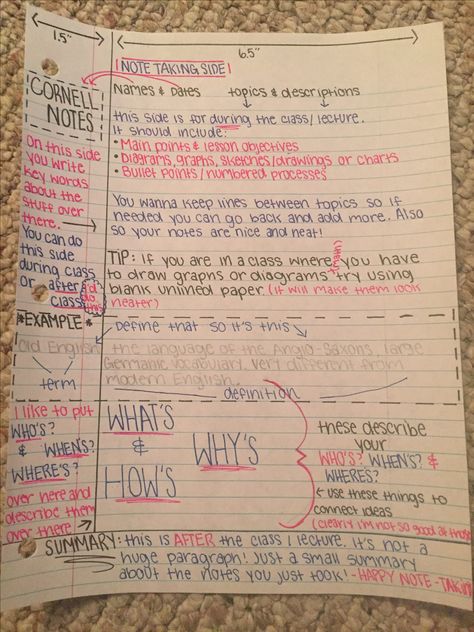 1.5"
6.5"
NOTE TAKING SIDE
CORNELL
NOTES
On this side
you write
key words
about the
stuff over
there.
You can do
this side
during class
or after
class
I'd do this
NAMES & DATES topics & descriptions
this side is for during the class/lecture.
It should include:
• Main points & lesson objectives
• Diagrams, graphs, sketches/drawings or charts
• Bullet Points/numbered processes
You wanna keep lines between topics so if
needed you can go back and add more. Also
so your notes are nice and neat!
TIP: if you are in a class where you have
to draw graphs or diagrams try using
blank unlined paper. (it will make them look
neater)
*EXAMPLE*
define that so it's this
Old English
term
the language of the Anglo-Saxons, large
Germanic vocabulary. Very different from
modern English.
definition
I like to put
WHO'S?
& WHEN'S?
WHERE'S?
over here and
describe them
over there
WHAT'S
&
HOW'S
WHY'S
these describe
your
WHO'S? WHEN'S? &
WHERES?
use these things to
connect ideas
(clearly i'm not so good at those
SUMMARY: this is AFTER the class / lecture. It's not a
huge paragraph! Just a small summary
about the notes you just took! - HAPPY NOTE-TAKIN